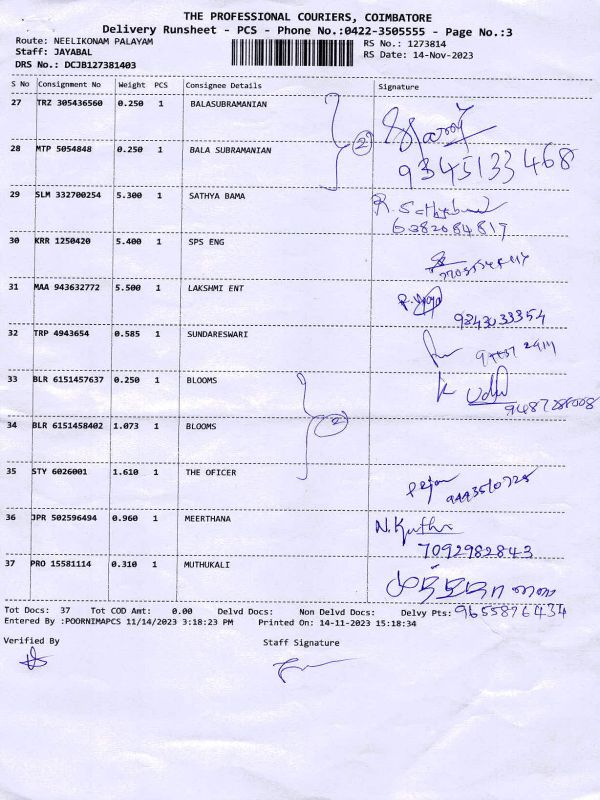 THE PROFESSIONAL COURIERS, COIMBATORE
Delivery Runsheet - PCS - Phone No.:0422-3505555 - Page No.:3
Route: NEELIKONAM PALAYAM
RS No.: 1273814
Staff: JAYABAL
RS Date: 14-Nov-2023
DRS No.: DCJB127381403
S No Consignment No Weight PCS Consignee Details Signature
27 TRZ 305436560 0.250 1 BALASUBRAMANIAN
28 MTP 5054848 0.250 1 BALA SUBRAMANIAN 2
9345133468
29 SLM 332700254 5.300 1 SATHYA BAMA R. Sathyabama
6382084817
30 KRR 1250420 5.400 1 SPS ENG
31 MAA 943632772 5.500 1 LAKSHMI ENT
9843033354
32 TRP 4943654 0.585 1 SUNDARESWARI
33 BLR 6151457637 0.250 1 BLOOMS
34 BLR 6151458402 1.073 1 BLOOMS 2
35 STY 6026001 1.610 1 THE OFICER
36 JPR 502596494 0.960 1 MEERTHANA
7092982843
37 PRO 15581114 0.310 1 MUTHUKALI
Tot Docs: 37 Tot COD Amt: 0.00 Delvd Docs: Non Delvd Docs: Delvy Pts: 9655876434
Entered By :POORNIMAPCS 11/14/2023 3:18:23 PM Printed On: 14-11-2023 15:18:34
Verified By Staff Signature